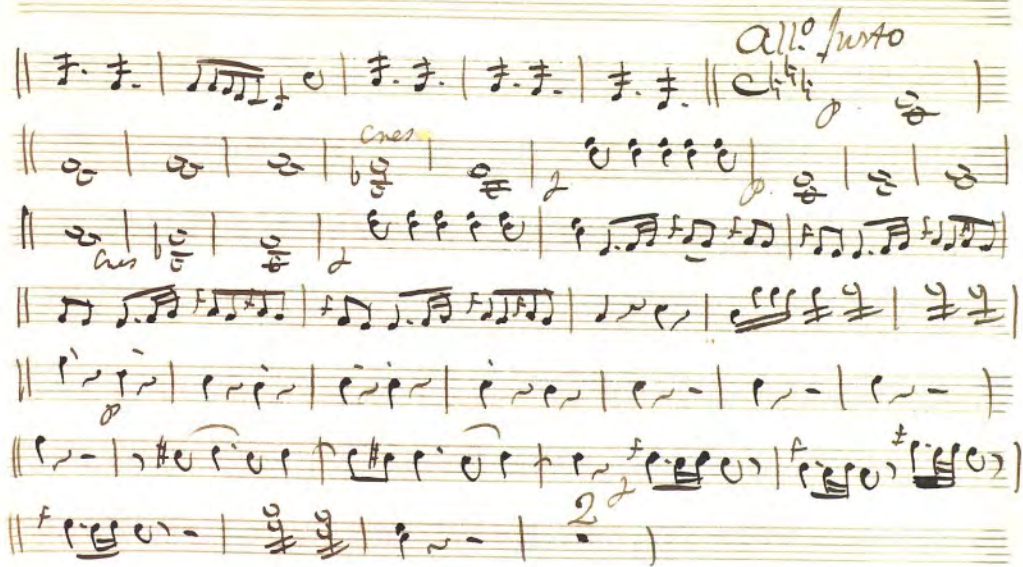 All.º Justo
p
cres
f p
cres f
p
f
2